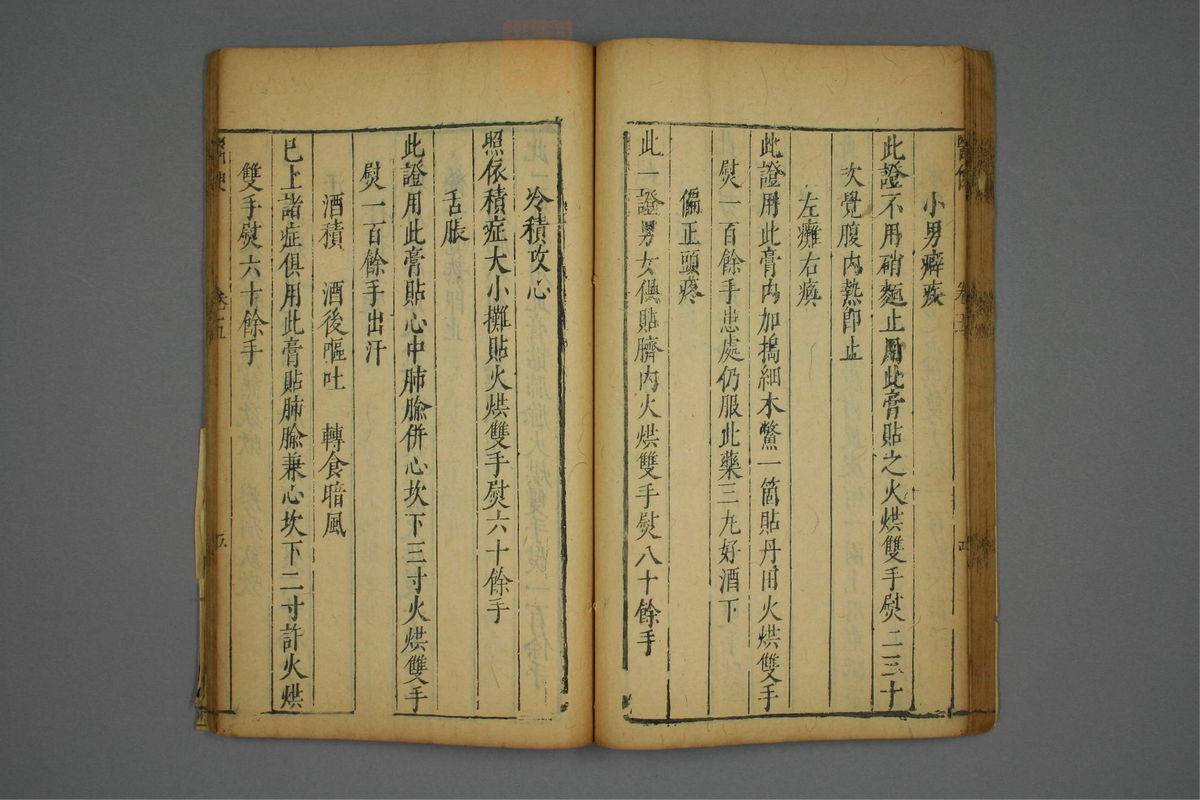 小男癖疾
此證不用硝麵止用此膏貼之火烘雙手熨二三十
次覺腹內熱即止
左癱右瘓
此證用此膏內加搗細木鱉一箇貼丹田火烘雙手
熨一百餘手患處仍服此藥三九好酒下
偏正頭疼
此一證男女俱貼臍內火烘雙手熨八十餘手
冷積攻心
照依積症大小攤貼火烘雙手熨六十餘手
舌脹
此證用此膏貼心中肺腧併心坎下三寸火烘雙手
熨一百餘手出汗
酒積　酒後嘔吐　轉食暗風
已上諸症俱用此膏貼肺腧兼心坎下二寸許火烘
雙手熨六十餘手
卷五